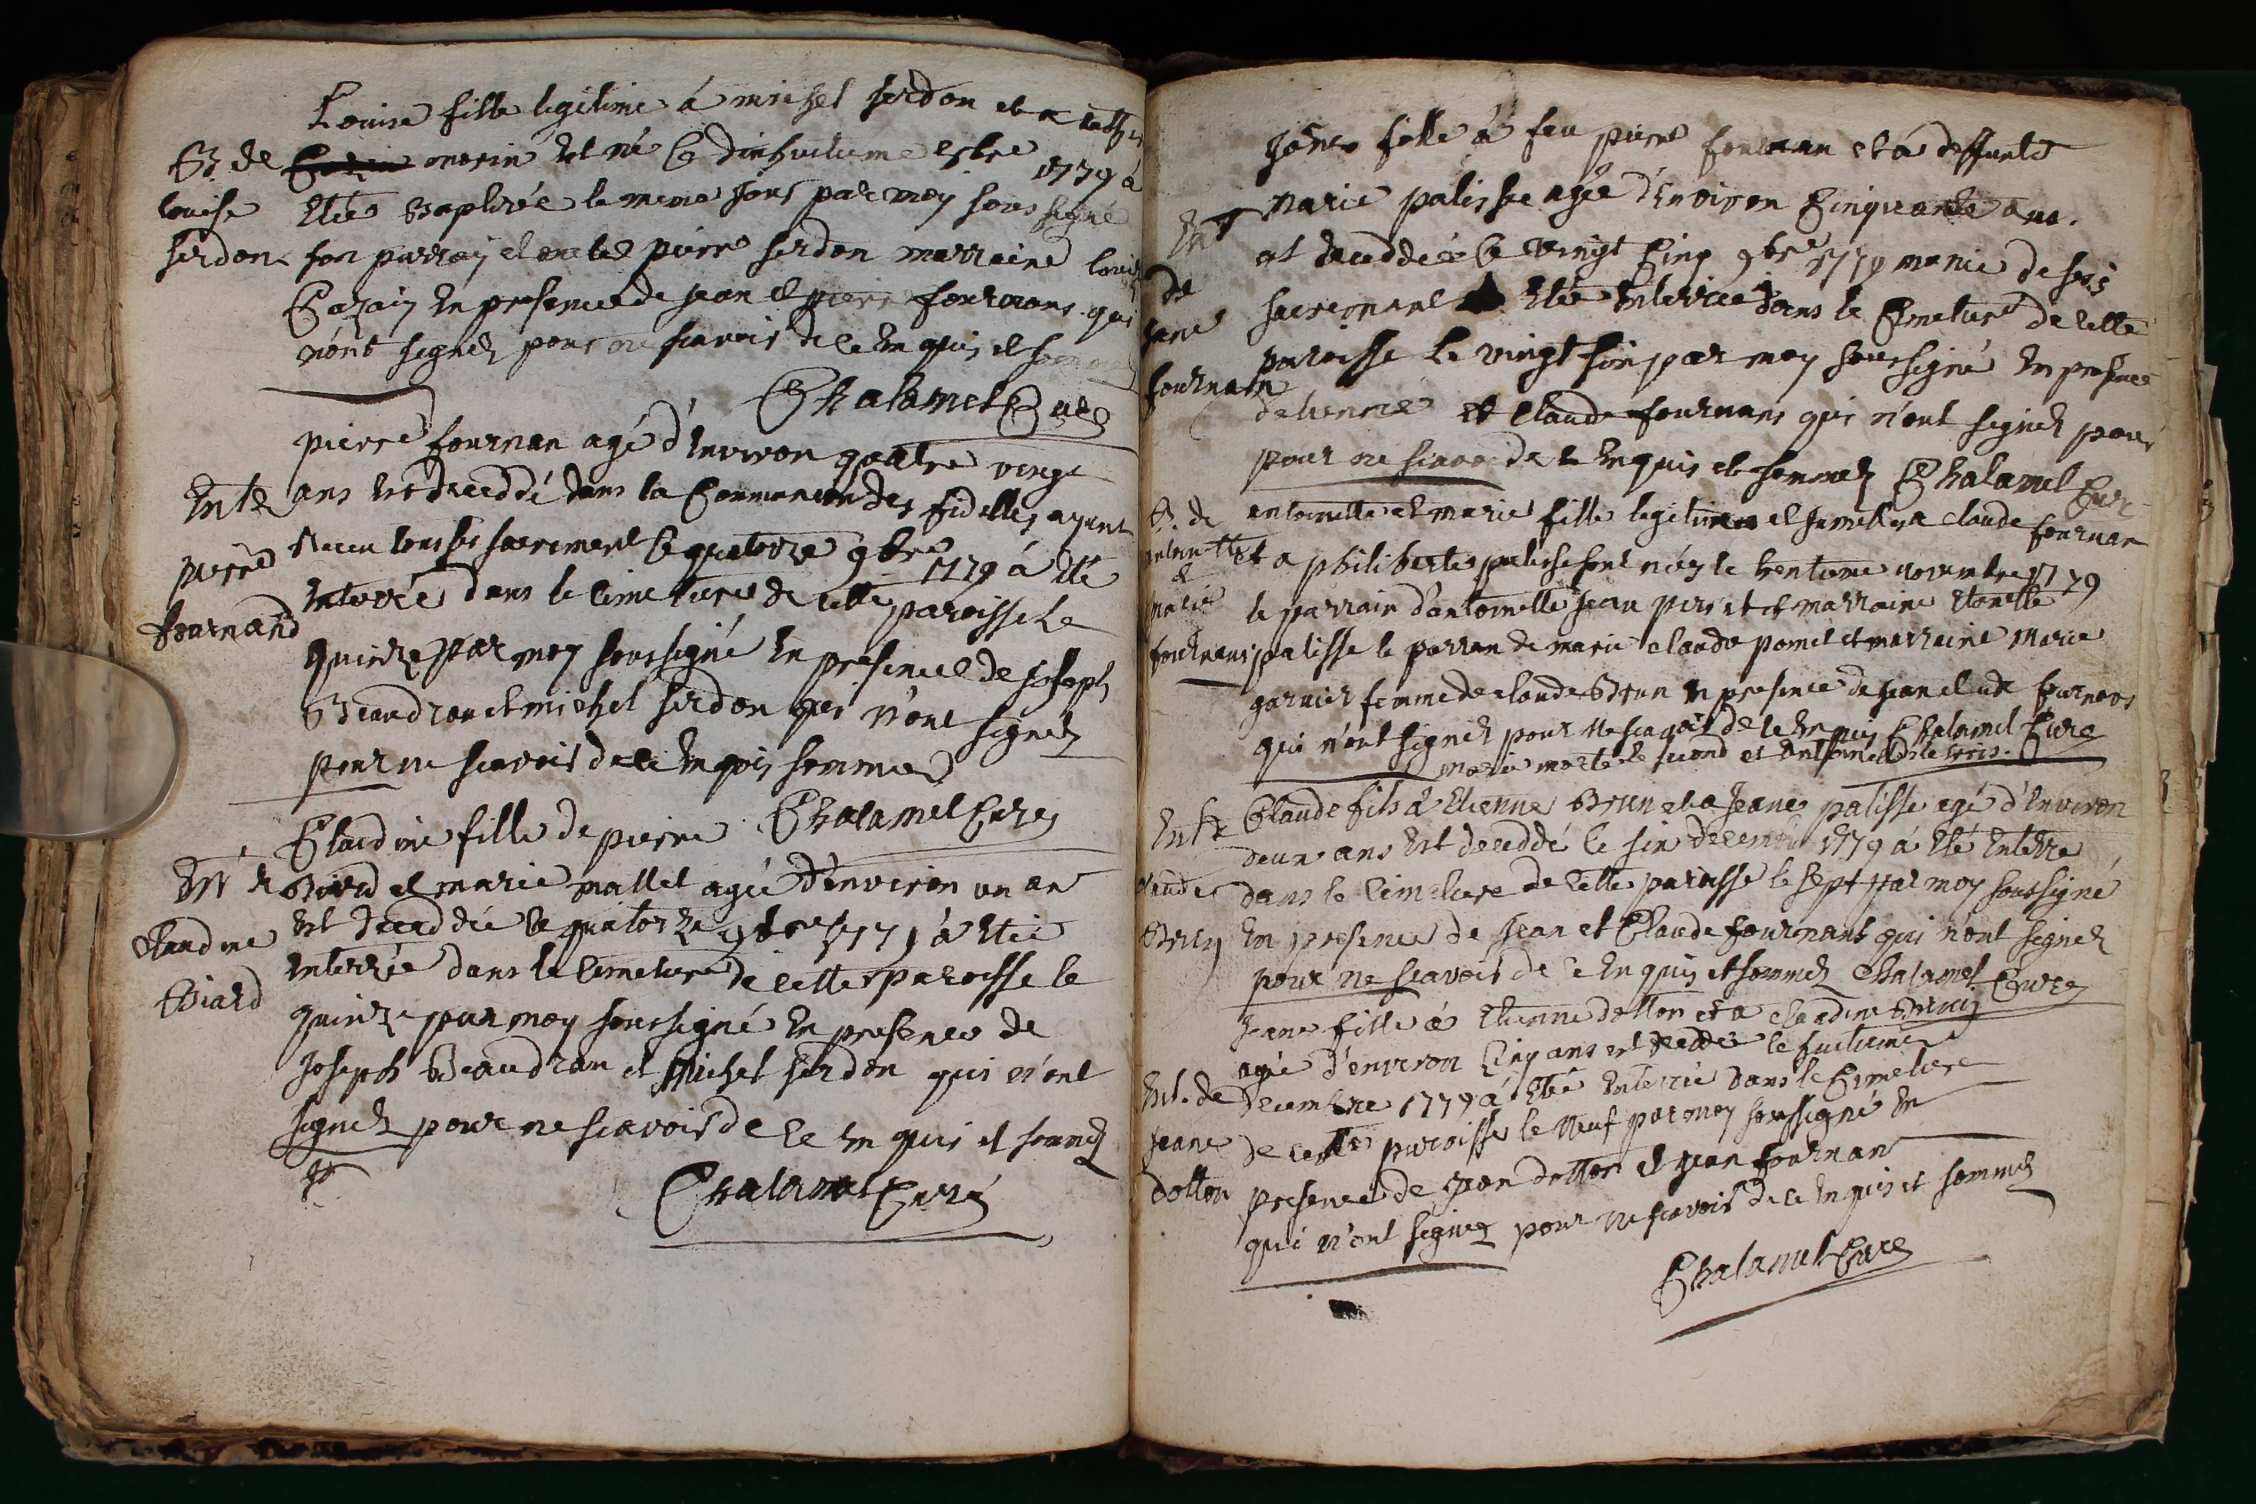 Louise fille legitime à michel serdon et a
B. de
morin est né le dixhuitieme 1779 à
Louise
Eté Baptisée le meme jour par moy sous signé
serdon
son parrain a eté pierre serdon marraine
Cazain En presence de jean et pierre fournans qui
n'ont signer pour ne scavoir de ce En quis et
Chalamel Curé
pierre fournan agé d'Environ quatre vingt
Ent de
ans Est deceddé dans la Communion des fidelles ayant
Receu tous ses sacrement le quatorze 9bre 1779 à Eté
pierre
Enterré dans le cimetiere de cette paroisse le
fournand
quinze par moy soussigné En presence de joseph
Beaudran et michel serdon qui n'ont signer
pour ne scavoir de ce Enquis sommer
Chalamel Curé
Claudine fille de pierre
Ent de
Biard et marie mallet agée d'environ un an
Claudine
Est deceddée le quatorze 9bre 1779 à Etée
Enterrée dans le cimetiere de cette paroisse le
Biard
quinze par moy soussigné En presence de
Joseph Beaudran et Michel serdon qui n'ont
signer pour ne scavoir de ce En quis et sommer
Chalamel Curé
Jane fille à feu pierre fournan et à deffunte
Marie palisse agée d'Environ Cinquante ans
Ent
est deceddée le vingt Cinq 9bre 1779 munie de ses
de
sacrement Etée Enterrée dans le Cimetiere de cette
Jane
paroisse Le vingt six par moy soussigné En presence
fournan
d'etienne et Claude fournans qui n'ont signer pour
pour ne scavoir de ce Enquis et sommer Chalamel Curé
B. de
antoinette et marie fille legitimes et jumelle a claude fournan
antoinette
et a philiberte palisse sont néez le trentieme novembre 1779
&
marie
le parrain d'antoinette jean et marraine
fournans
palisse le parran de marie claude et marraine marie
garnier femme de claude Brun En presence de jean claude fournans
qui n'ont signer pour ne scavoir de ce Enquis Chalamel Curé
marie morte le second et antoinette le trois.
Ent de
Claude fils à Etienne Brun et a Jeane palisse agé d'Environ
deux ans Est deceddé le six decembre 1779 à Eté Enterré
Claude
dans le Cimetiere de cette paroisse le sept par moy soussigné
Brun
En presence de Jean et Claude fournans qui n'ont signer
pour ne scavoir de ce Enquis et sommer Chalamel Curé
Jeane fille à Etienne dotton et a claudine Brun
agée d'environ Cinq ans est deceddée le huitieme
Ent. de
Decembre 1779 à Etée Enterrée dans le Cimetiere
Jeane
de cette paroisse le Neuf par moy soussigné En
dotton
presence de jean dotton et jean fournan
qui n'ont signer pour ne scavoir de ce Enquis et sommer
Chalamel Curé